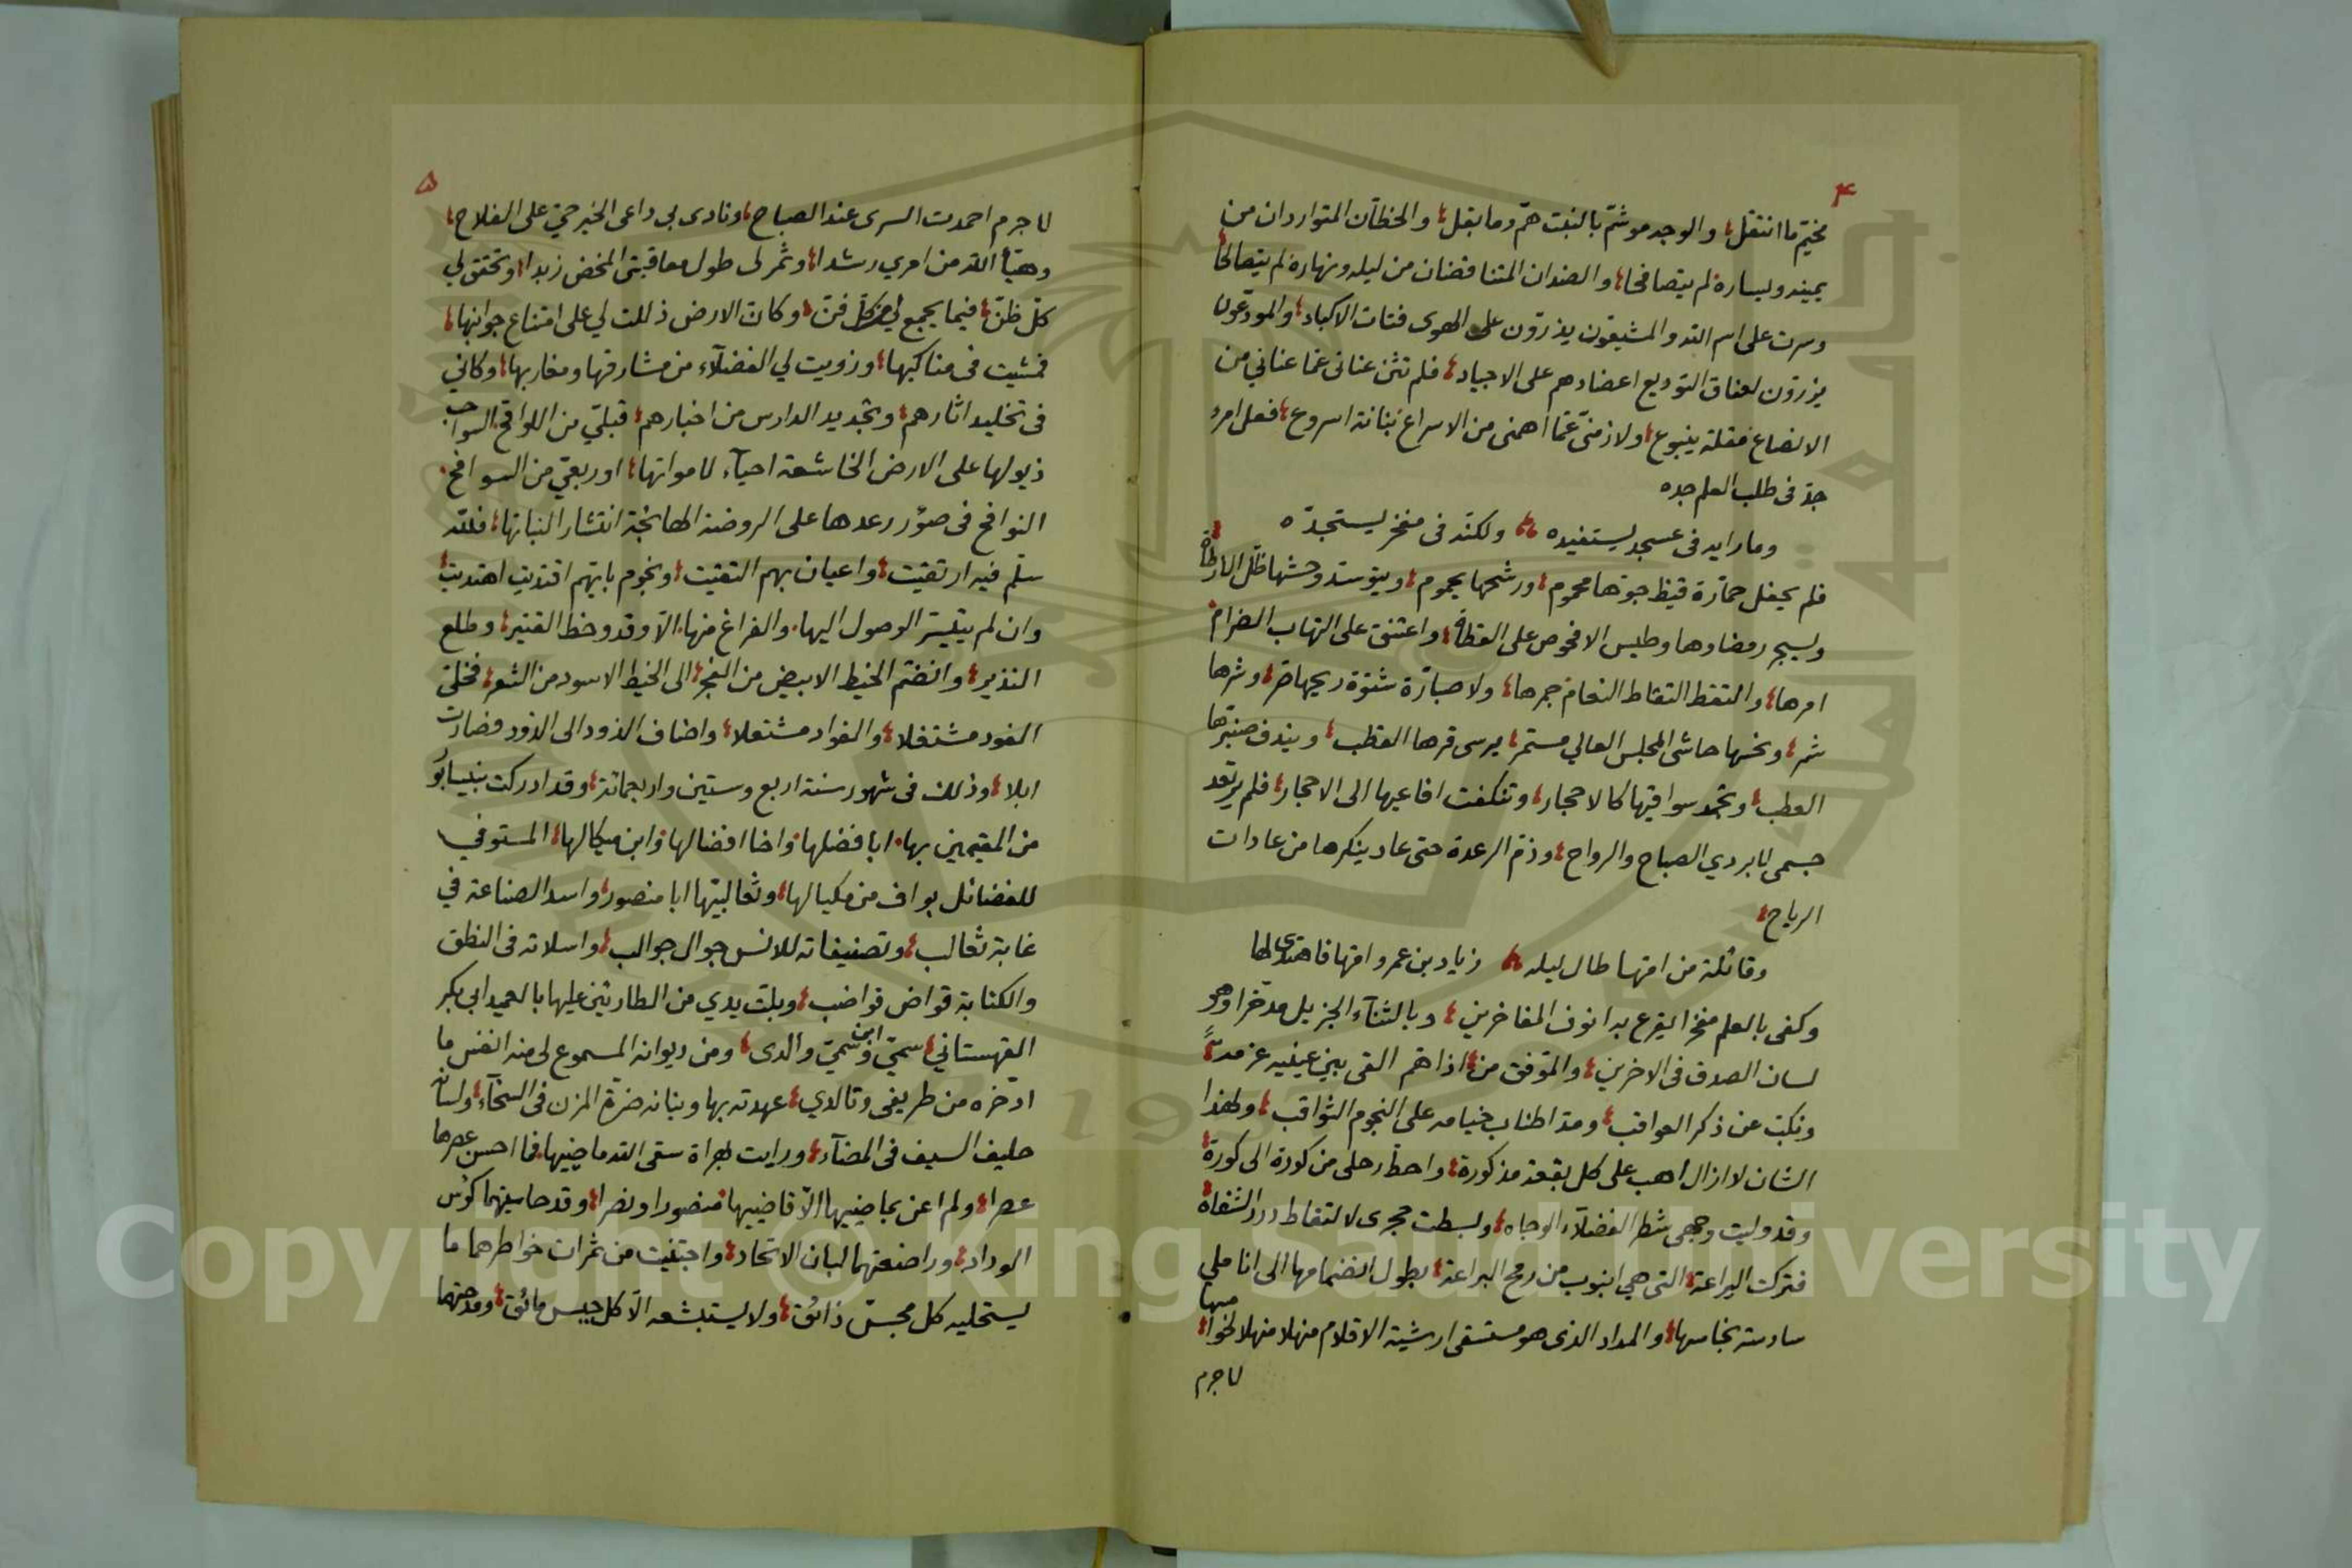 ٤
مخيّم ما انتقل، والوجه موشّم بالنبت همّ وما بقل، والخطّان المتواردان من
يمينه ويساره لم يتصافحا، والضدان المتناقضان من ليله ونهاره لم يتصالحا
وسرت على اسم الله والمشيّعون يذرّون على الهوى فتات الاكباد، والمودّعون
يزرّون لعناق التوديع اعضادهم على الاجياد، فلم تثن عناني عمّا عناني من
الانضاع مقلة ينبوع، ولا زمتني عمّا اهمني من الاسراع بنانة اسروع، فعل امرء
جدّ فى طلب العلم جده
وما رايه فى عسجد يستفيده ولكنّه فى مفخر يستجدّه
فلم يحفل حمارّة قيظ جوّها محموم، ورشحها يحموم، ويتوسّد وحشها ظلّ الارطاة
ويسجر رمضاءها وطيس الافحوص على القطاة، واعتنق على التهاب الضرام
امرها، والتقط التقاط النعام جمرها، ولا صبارّة شتوة ريحها صر، وشرها
شمر، ونحسها حاشى المجلس العالي مستمر، يرسى قرها القطب، ويندف صنبرها
العطب، وتجمد سواقيها كالاحجار، وتنكفت افاعيها الى الاحجار، فلم يرتعد
جسمى لابردي الصباح والرواح، وذمّ الرعدة حتى عاد ينكرها من عادات
الرياح،
وقائلة من امّها طال ليله زياد بن عمرو امّها فاهتدى لها
وكفى بالعلم مفخرا يقرع به انوف المفاخرين، وبالثناء الجزيل مدّخرا وهو
لسان الصدق فى الاخرين، والموفق من، اذا همّ القى بين عينيه عزمه،
ونكّب عن ذكر العواقب، ومدّ اطناب خيامه على النجوم الثواقب، ولهذا
الشان لا ازال اهب على كل بقعة مذكورة، واحطّ رحلى من كورة الى كورة،
وقد وليت وجهى شطر الفضلاء الوجاه، وبسطت حجرى لالتقاط درر الشفاه،
فتركت اليراعة، التى هى انبوب من رمح البراعة، بطول انضمامها الى اناملي
سادسة بخامسها، والمداد الذى هو مستقى ارشية الاقلام منهلا منهلا لخوا مسها،
لا جرم
٥
لا جرم احمدت السرى عند الصباح، ونادى بى داعى الخير حيّ على الفلاح،
وهيّأ الله من امري رشدا، وثمر لى طول معاقبتى المخض زبدا، وتحقق لي
كلّ ظنّ، فيما يجمع لي من كلّ فنّ، وكانّ الارض ذللت لي على امتناع جوانبها،
فمشيت فى مناكبها، وزويت لي الفضلاء من مشارقها ومغاربها، وكاني
فى تخليد اثارهم، وتجديد الدارس من اخبارهم، قبليّ من اللواقح السواحب
ذيولها على الارض الخاشعة احياء لامواتها، او ربعيّ من السوافح
النوافخ فى صوّر رعدها على الروضة الهائجة انتشار النباتها، فلله
سلّم فيه ارتقيت، واعيان بهم التقيت، ونجوم بايّهم اقتديت اهتديت،
وان لم يتيسّر الوصول اليها، والفراغ منها، الّا وقد وخط القتير، وطلع
النذير، وانضمّ الخيط الابيض من الفجر، الى الخيط الاسود من الشعر، فخلّي
الفود مشتغلا، والفواد مشتعلا، واضاف الذود الى الذود فصارت
ابلا، وذلك فى شهور سنة اربع وستين واربعمائة، وقد ادركت بنيسابور
من المقيمين بها، ابا فضلها، واخا افضالها، وابن ميكالها، المستوفي
للفضائل بواف من مكيالها، وثعالبيّها ابا منصور، واسد الصناعة في
غابة ثعالب، وتصنيفاته للانس جوال جوالب، واسلاته فى النطق
والكتابة قواض قواضب، وبلّت يدي من الطارئين عليها بالعميد ابى بكر
القهستاني، سميّ وابن سميّ والدى، ومن ديوانه المسموع لى منه انفس ما
ادّخره من طريفى وتالدي، عهدته بها وبنانه ضرّة المزن فى السخاء، ولسانه
حليف السيف فى المضاء، ورايت بهراة سقى الله ماضيها، فما احسن عصرها
عصرا، ولم اعن بماضييها الّا قاضييها، منصورا ونضرا، وقد حاسيتهما كؤس
الوداد، وراضعتهما لبان الاتحاد، واجتنيت من ثمرات خواطرهما ما
يستحليه كل مجسّ ذائق، ولا يستبشعه الّا كل جبس مائق، ومدحتهما